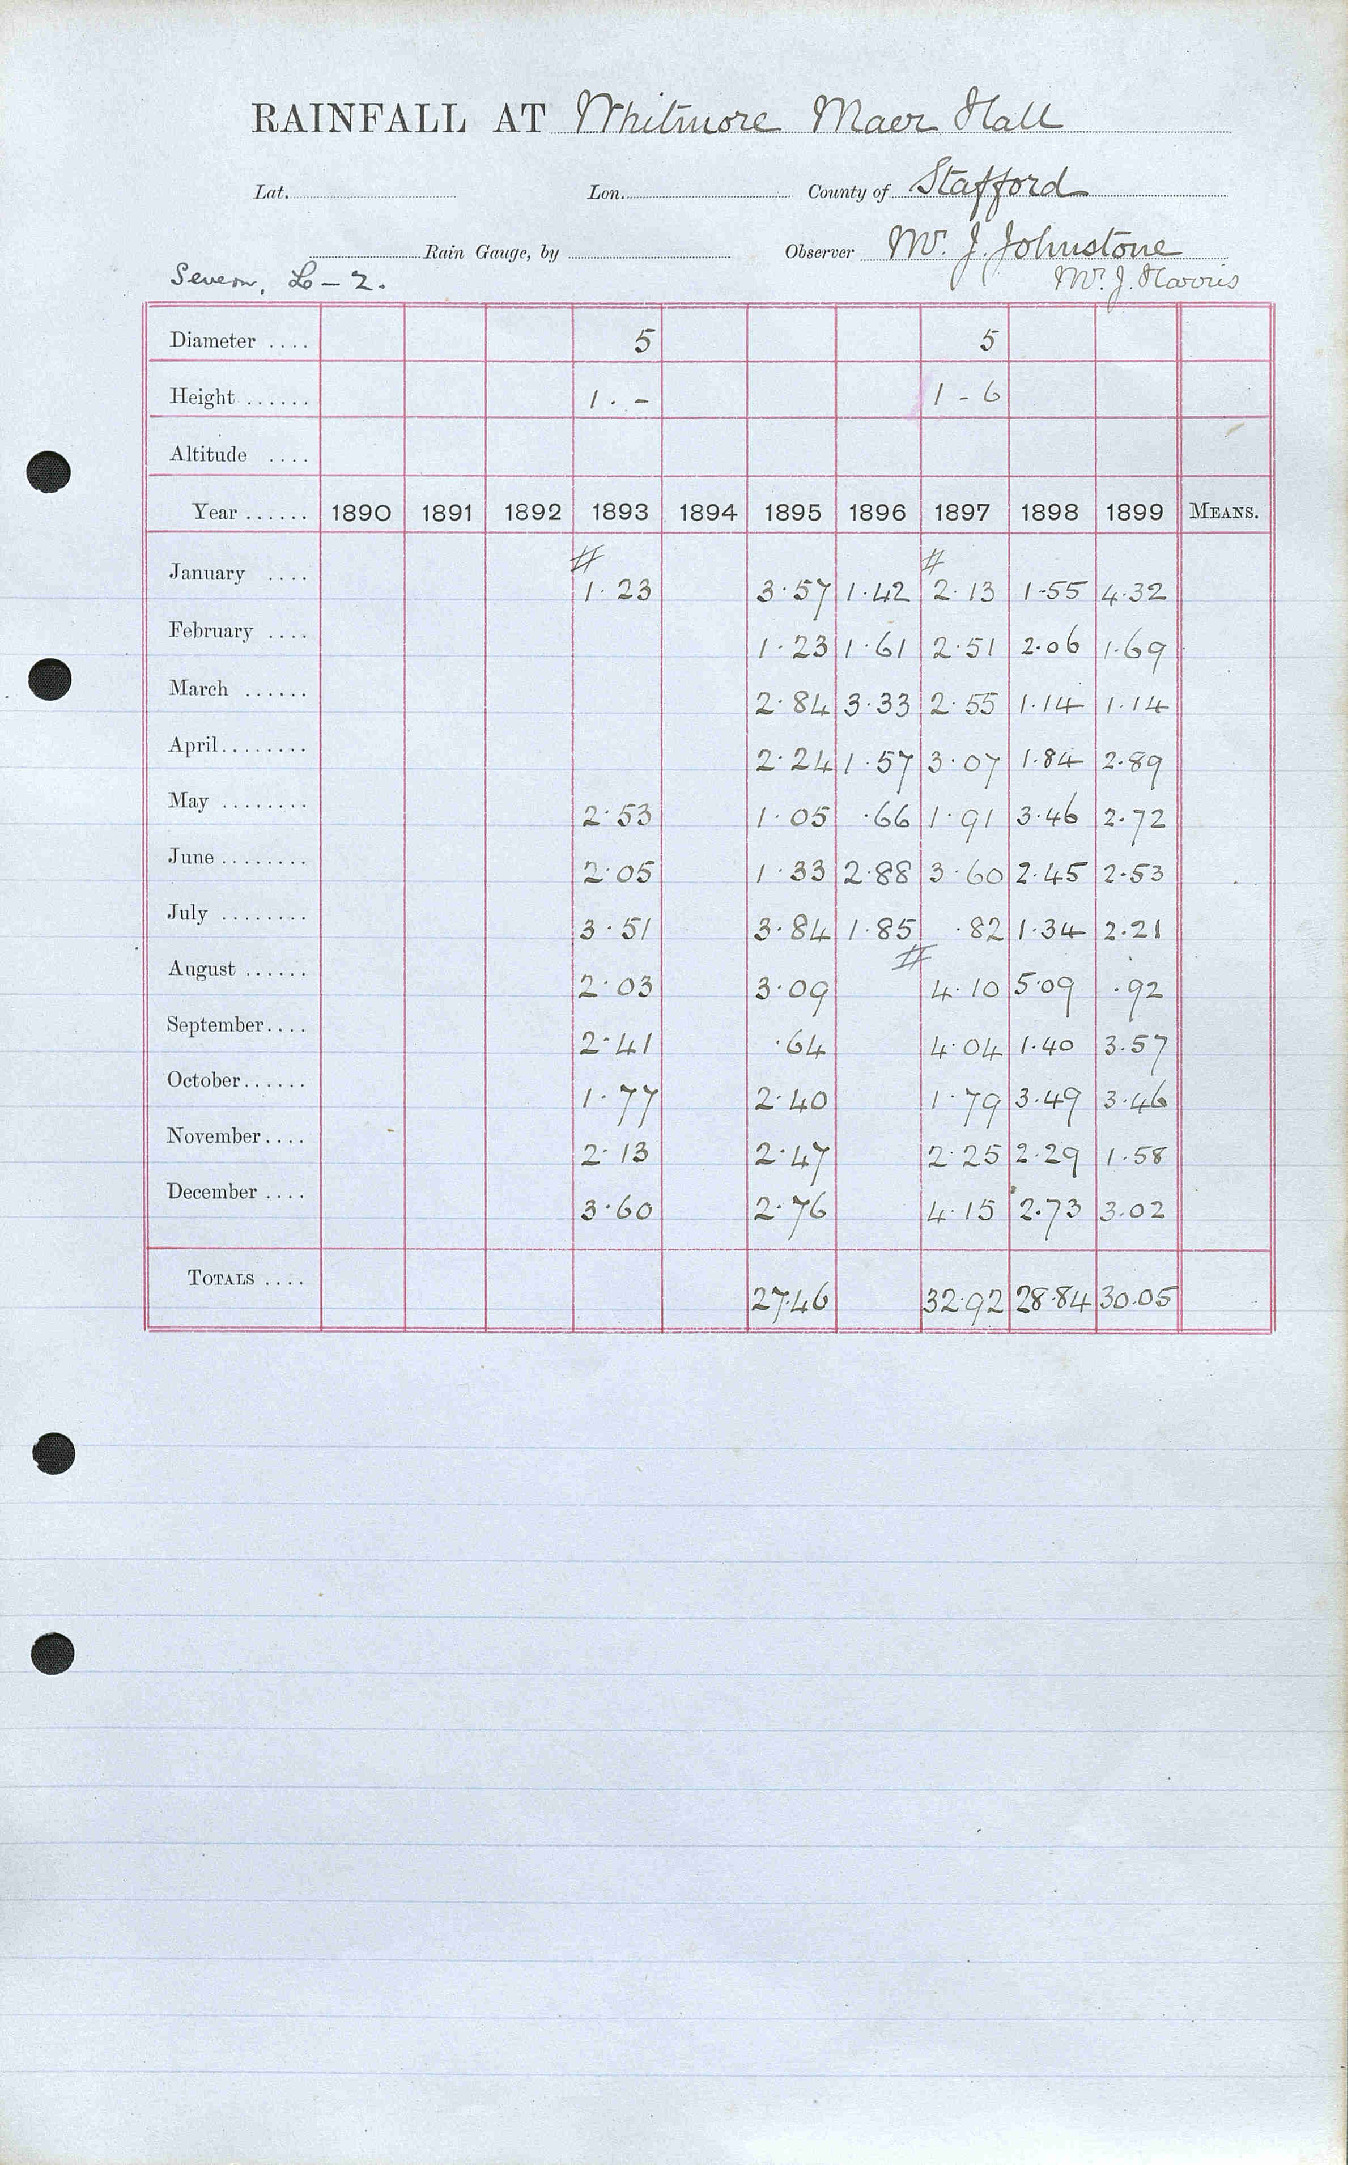 RAINFALL AT Whitmore Maer Hall
Lat. Lon. County of Stafford
Rain Gauge, by Observer Mr. J. Johnstone
Severn, L - 2. Mr. J. Harris
Diameter .... 5 5
Height ...... 1 . - 1 - 6
Altitude ....
Year ...... 1890 1891 1892 1893 1894 1895 1896 1897 1898 1899 MEANS.
# #
January .... 1.23 3.57 1.42 2.13 1.55 4.32
February .... 1.23 1.61 2.51 2.06 1.69
March ...... 2.84 3.33 2.55 1.14 1.14
April........ 2.24 1.57 3.07 1.84 2.89
May ........ 2.53 1.05 .66 1.91 3.46 2.72
June ........ 2.05 1.33 2.88 3.60 2.45 2.53
July ........ 3.51 3.84 1.85 .82 1.34 2.21
#
August ...... 2.03 3.09 4.10 5.09 .92
September.... 2.41 .64 4.04 1.40 3.57
October...... 1.77 2.40 1.79 3.49 3.46
November.... 2.13 2.47 2.25 2.29 1.58
December .... 3.60 2.76 4.15 2.73 3.02
TOTALS .... 27.46 32.92 28.84 30.05